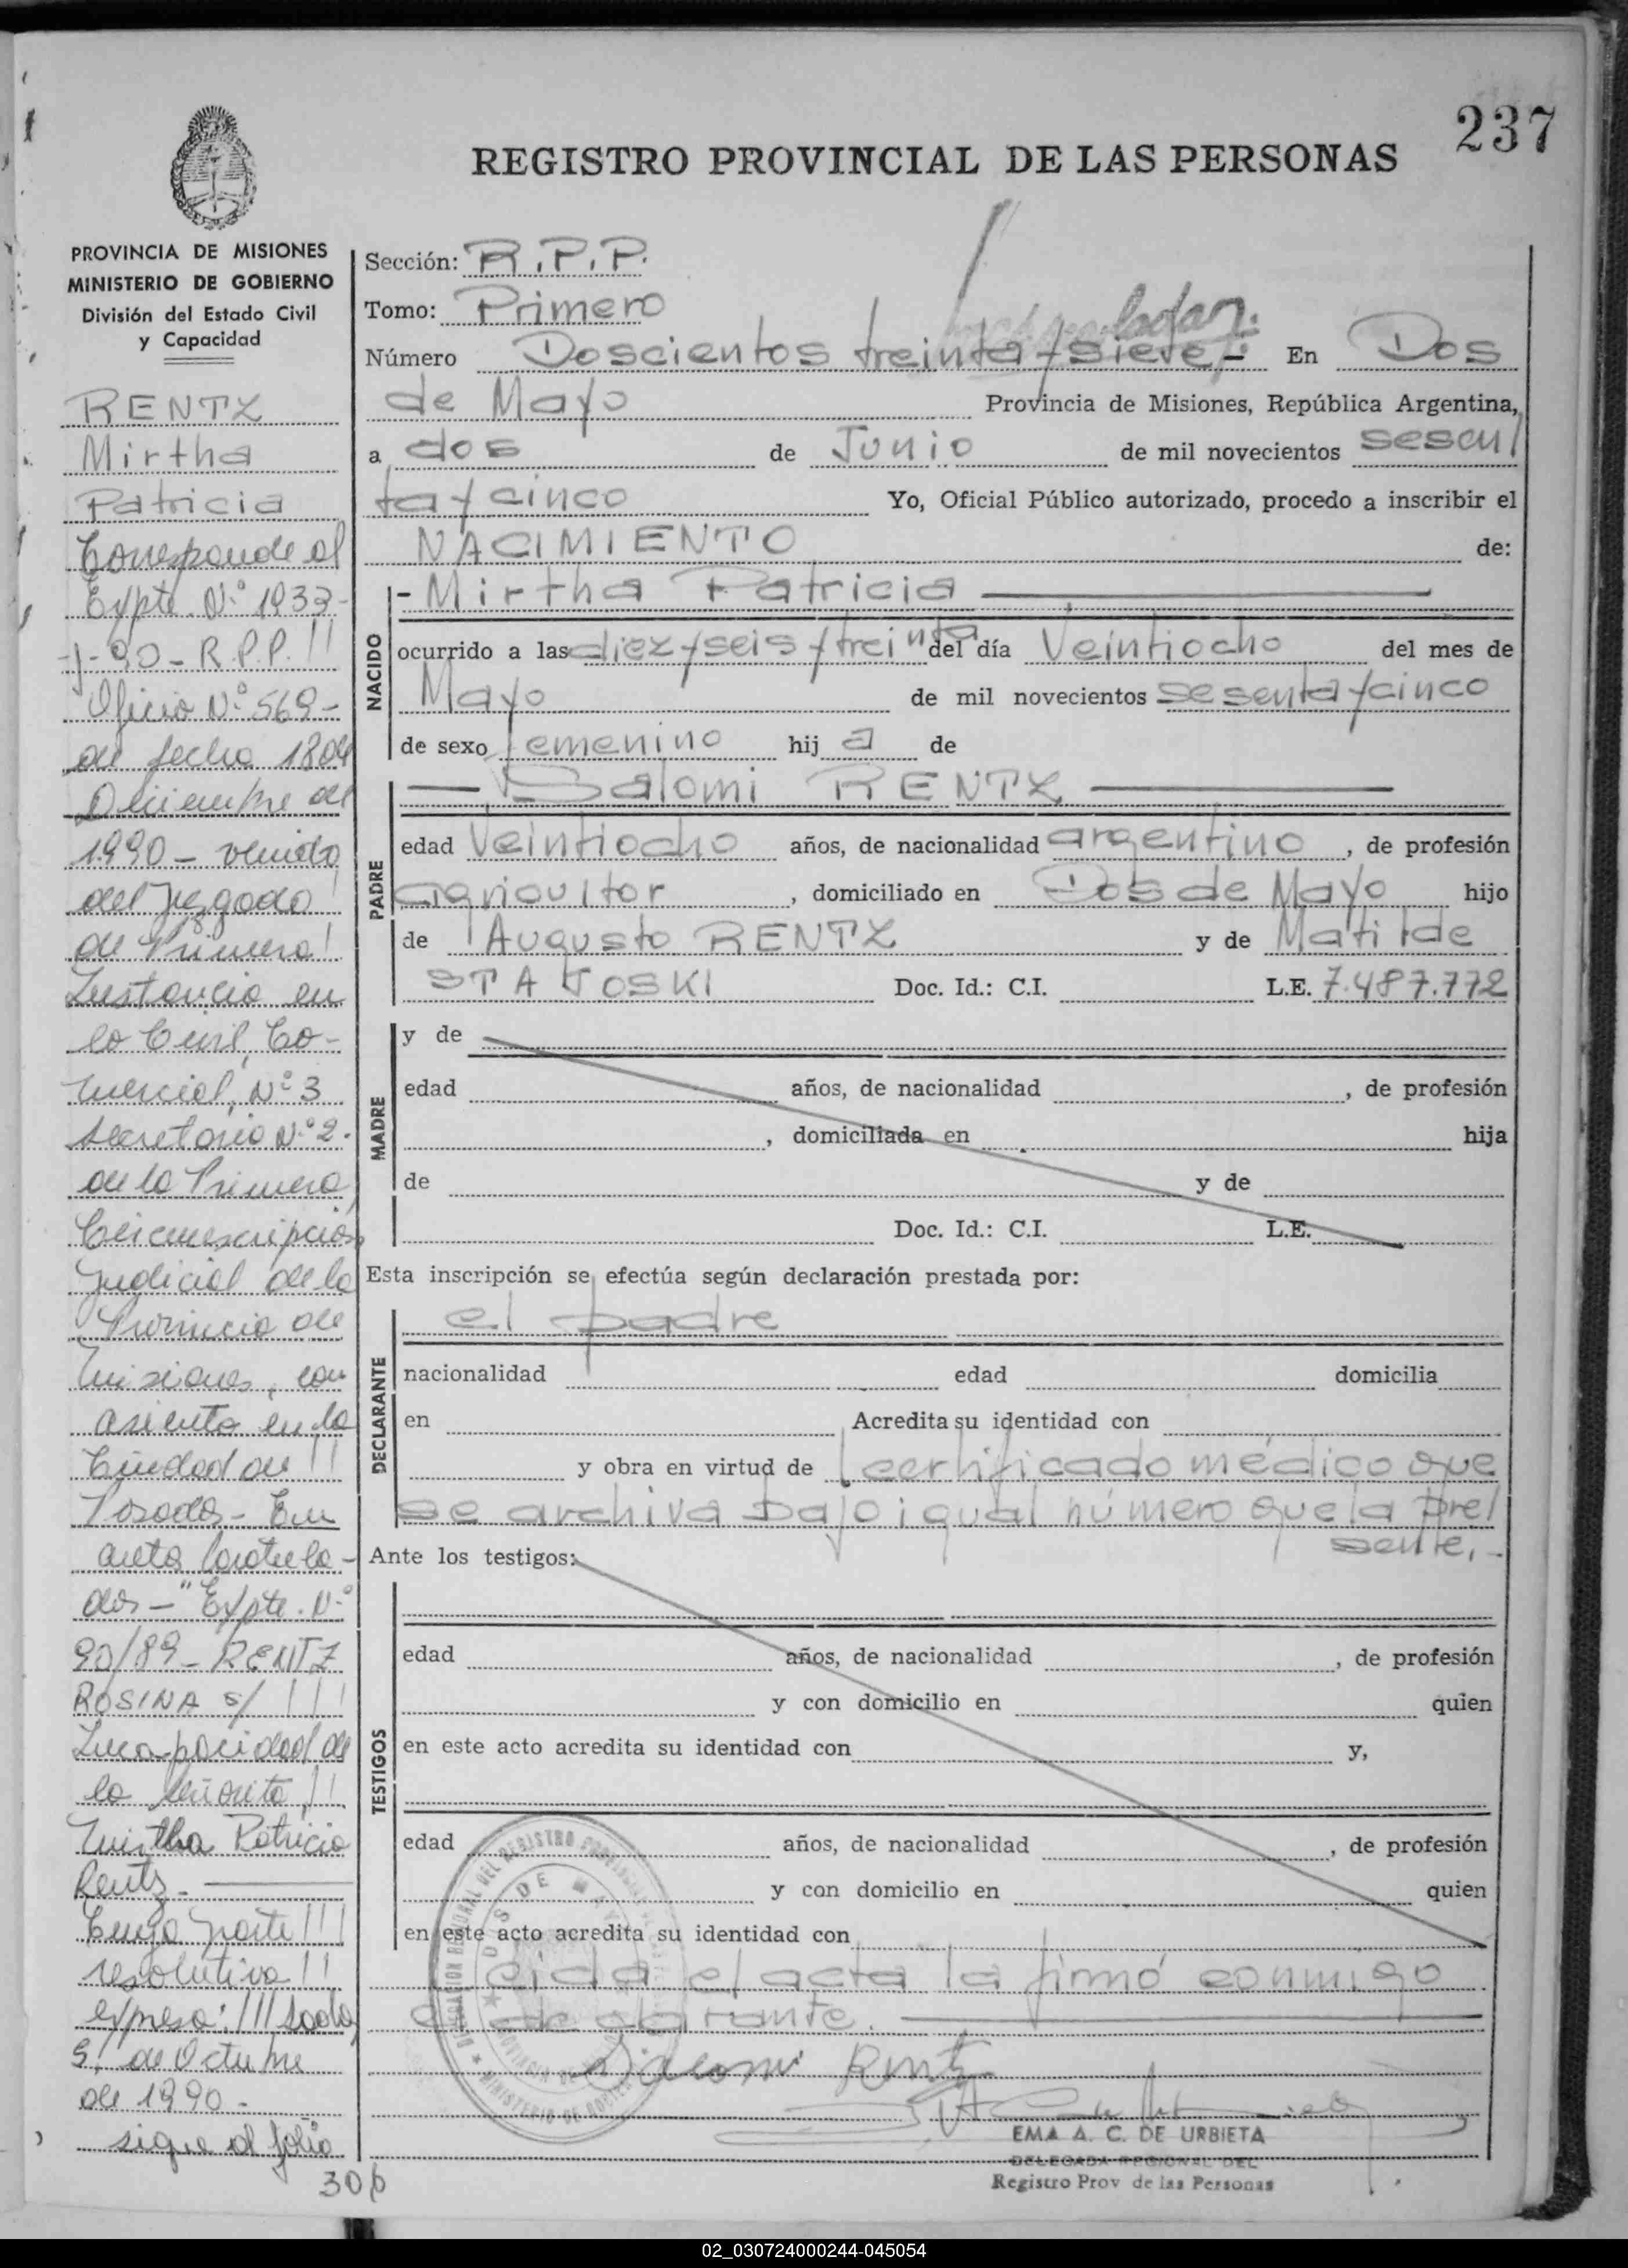 237
REGISTRO PROVINCIAL DE LAS PERSONAS
PROVINCIA DE MISIONES
MINISTERIO DE GOBIERNO
División del Estado Civil
y Capacidad
RENTZ
Mirtha
Patricia
Corresponde al
Expte. Nº 1933-
-J-90- R.P.P. //
Oficio Nº 569-
de fecha 18 de
Diciembre de
1990 - venido
del Juzgado
de Primera
Instancia en
lo Civil, Co-
mercial, Nº 3
Secretaria Nº 2.
de la Primera
Circunscripción
Judicial de la
Provincia de
Misiones, con
asiento en la
Ciudad de //
Posadas - En
autos Caratula-
dos - "Expte. Nº
90/89 - RENTZ
ROSINA s/ ///
Incapacidad de
la señorita //
Mirtha Patricia
Rentz -
Cuya parte ///
resolutiva //
expresa: ///
de Octubre
de 1990 -
sigue al folio
306
Sección: R.P.P.
Tomo: Primero
Número Doscientos treinta y siete,- En Dos
de Mayo Provincia de Misiones, República Argentina,
a dos de Junio de mil novecientos sesen/
ta y cinco Yo, Oficial Público autorizado, procedo a inscribir el
NACIMIENTO de:
NACIDO
- Mirtha Patricia
ocurrido a las diez y seis y treinta del día Veintiocho del mes de
Mayo de mil novecientos sesenta y cinco
de sexo femenino hij a de
PADRE
Salomi RENTZ
edad Veintiocho años, de nacionalidad argentino, de profesión
agricultor, domiciliado en Dos de Mayo hijo
de Augusto RENTZ y de Matilde
Doc. Id.: C.I. L.E. 7.487.772
MADRE
y de
edad años, de nacionalidad , de profesión
, domiciliada en hija
de y de
Doc. Id.: C.I. L.E.
Esta inscripción se efectúa según declaración prestada por:
DECLARANTE
el padre
nacionalidad edad domicilia
en Acredita su identidad con
y obra en virtud de certificado médico que
se archiva bajo igual número que la pre/
sente,-
Ante los testigos:
TESTIGOS
edad años, de nacionalidad , de profesión
y con domicilio en quien
en este acto acredita su identidad con y,
edad años, de nacionalidad , de profesión
y con domicilio en quien
en este acto acredita su identidad con
leída el acta la firmó conmigo
el declarante.
Salomi Rentz
EMA A. C. DE URBIETA
DELEGADA REGIONAL DEL
Registro Prov de las Personas
02_030724000244-045054